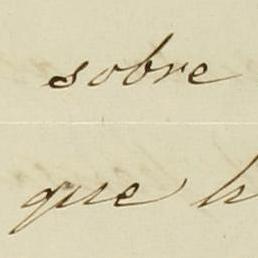 sobre
que